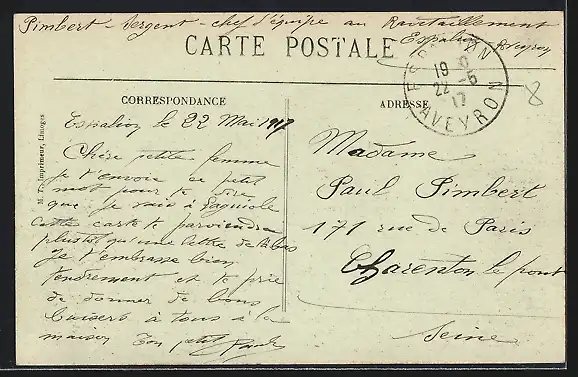 Pimbert - Sergent - chef d'équipe au Ravitaillement
Espalion Aveyron
CARTE POSTALE
ESPALION
19
22 - 5
17
AVEYRON
8
CORRESPONDANCE
ADRESSE
M. T. Imprimeur, Limoges
Espalion le 22 Mai 1917
Chère petite femme
Je t'envoie ce petit
mot pour te dire
que je vais à Laguiole
cette carte te parviendra
plustôt qu'une lettre de là bas
Je t'embrasse bien
tendrement et te prie
de donner de bons
baisers à tous à la
maison Ton petit Paul
Madame
Paul Pimbert
171 rue de Paris
Charenton le pont
Seine